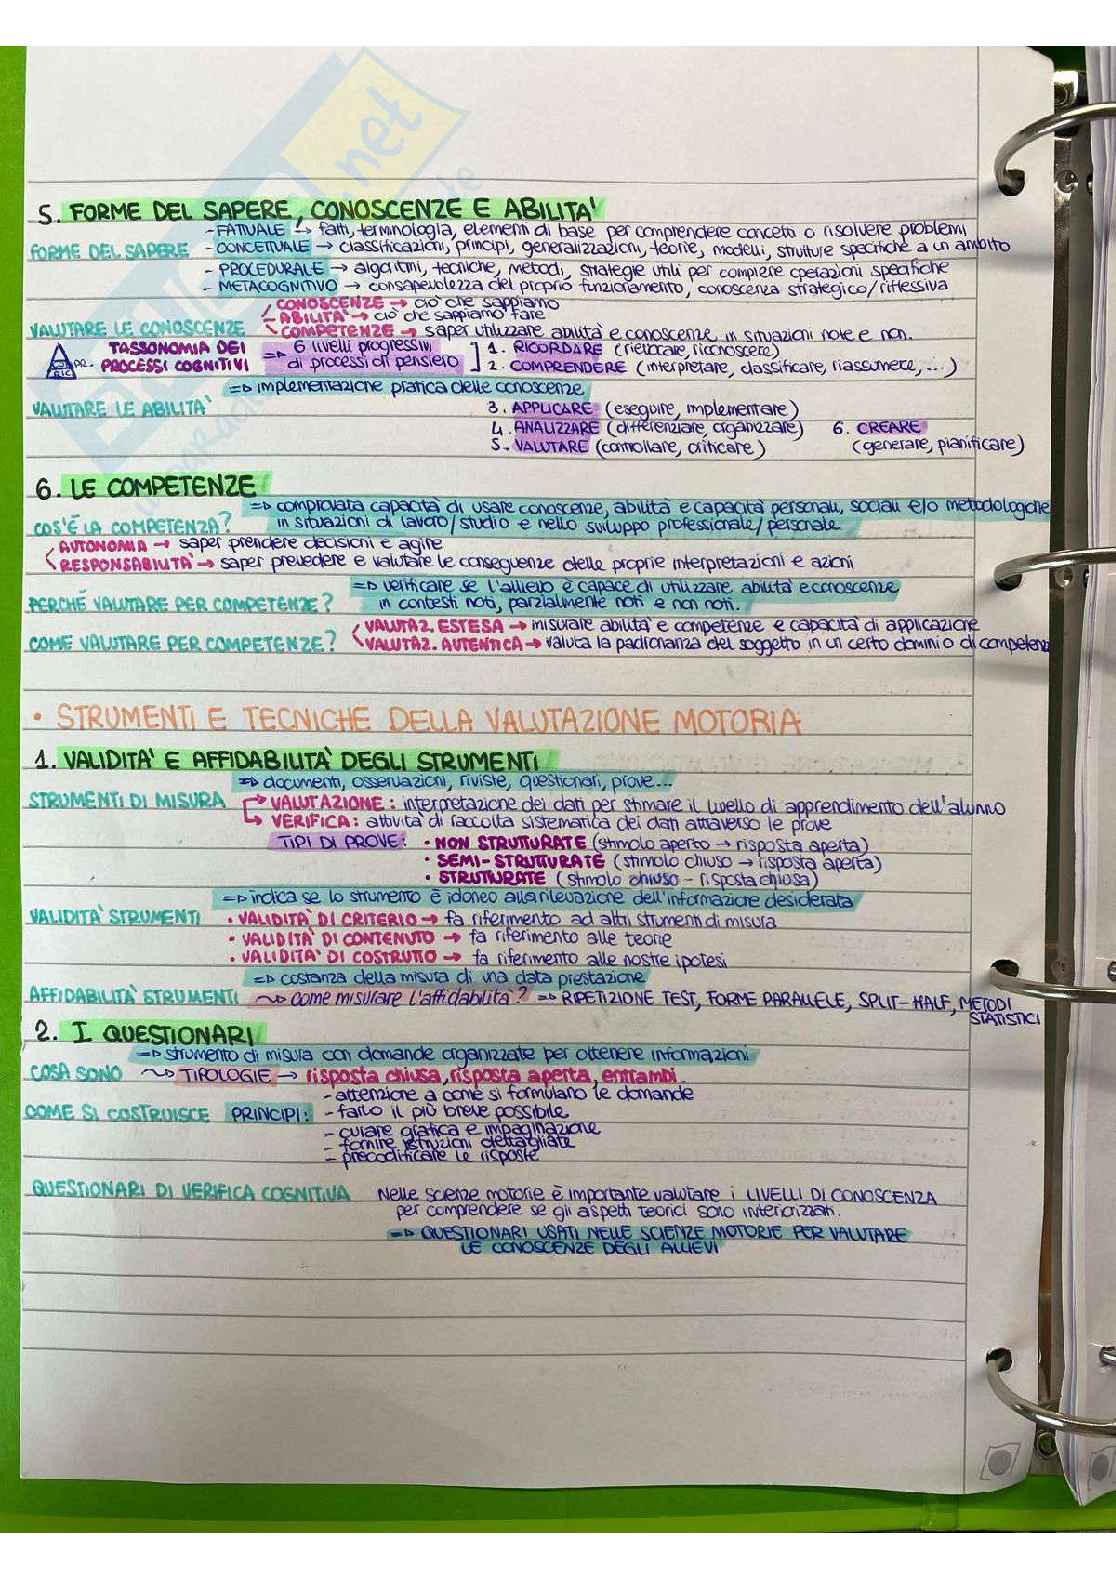 5. FORME DEL SAPERE, CONOSCENZE E ABILITA'
- FATTUALE → fatti, terminologia, elementi di base per comprendere concetti o risolvere problemi
FORME DEL SAPERE - CONCETTUALE → classificazioni, principi, generalizzazioni, teorie, modelli, strutture specifiche a un ambito
- PROCEDURALE → algoritmi, tecniche, metodi, strategie utili per compiere operazioni specifiche
- METACOGNITIVO → consapevolezza del proprio funzionamento, conoscenza strategico/riflessiva
CONOSCENZE → ciò che sappiamo
- ABILITA' → ciò che sappiamo fare
VALUTARE LE CONOSCENZE COMPETENZE → saper utilizzare abilità e conoscenze in situazioni note e non.
TASSONOMIA DEI PROCESSI COGNITIVI => 6 livelli progressivi di processi di pensiero ] 1. RICORDARE (rievocare, riconoscere)
2. COMPRENDERE (interpretare, classificare, riassumere, ...)
=> implementazione pratica delle conoscenze.
VALUTARE LE ABILITA' 3. APPLICARE (eseguire, implementare)
4. ANALIZZARE (differenziare, organizzare) 6. CREARE
5. VALUTARE (controllare, criticare) (generare, pianificare)
6. LE COMPETENZE
=> comprovata capacità di usare conoscenze, abilità e capacità personali, sociali e/o metodologiche
COS'È LA COMPETENZA? in situazioni di lavoro/studio e nello sviluppo professionale/personale
AUTONOMIA → saper prendere decisioni e agire
RESPONSABILITA' → saper prevedere e valutare le conseguenze delle proprie interpretazioni e azioni
=> verificare se l'allievo è capace di utilizzare abilità e conoscenze
PERCHÉ VALUTARE PER COMPETENZE? in contesti noti, parzialmente noti e non noti.
VALUTAZ. ESTESA → misurare abilità e competenze e capacità di applicazione
COME VALUTARE PER COMPETENZE? VALUTAZ. AUTENTICA → valuta la padronanza del soggetto in un certo dominio di competenza
• STRUMENTI E TECNICHE DELLA VALUTAZIONE MOTORIA
1. VALIDITA' E AFFIDABILITA' DEGLI STRUMENTI
=> documenti, osservazioni, riviste, questionari, prove...
STRUMENTI DI MISURA → VALUTAZIONE: interpretazione dei dati per stimare il livello di apprendimento dell'alunno
→ VERIFICA: attività di raccolta sistematica dei dati attraverso le prove
TIPI DI PROVE: • NON STRUTTURATE (stimolo aperto → risposta aperta)
• SEMI-STRUTTURATE (stimolo chiuso → risposta aperta)
• STRUTTURATE (stimolo chiuso - risposta chiusa)
=> indica se lo strumento è idoneo alla rilevazione dell'informazione desiderata
VALIDITA' STRUMENTI • VALIDITA' DI CRITERIO → fa riferimento ad altri strumenti di misura
• VALIDITA' DI CONTENUTO → fa riferimento alle teorie
• VALIDITA' DI COSTRUTTO → fa riferimento alle nostre ipotesi
=> costanza della misura di una data prestazione
AFFIDABILITA' STRUMENTI ~> come misurare l'affidabilità? => RIPETIZIONE TEST, FORME PARALLELE, SPLIT-HALF, METODI
STATISTICI
2. I QUESTIONARI
=> strumento di misura con domande organizzate per ottenere informazioni
COSA SONO ~> TIPOLOGIE → risposta chiusa, risposta aperta, entrambi
- attenzione a come si formulano le domande
COME SI COSTRUISCE PRINCIPI: - farlo il più breve possibile
- curare grafica e impaginazione
- fornire istruzioni dettagliate
- precodificare le risposte
QUESTIONARI DI VERIFICA COGNITIVA Nelle scienze motorie è importante valutare i LIVELLI DI CONOSCENZA
per comprendere se gli aspetti teorici sono interiorizzati.
=> QUESTIONARI USATI NELLE SCIENZE MOTORIE PER VALUTARE
LE CONOSCENZE DEGLI ALLIEVI